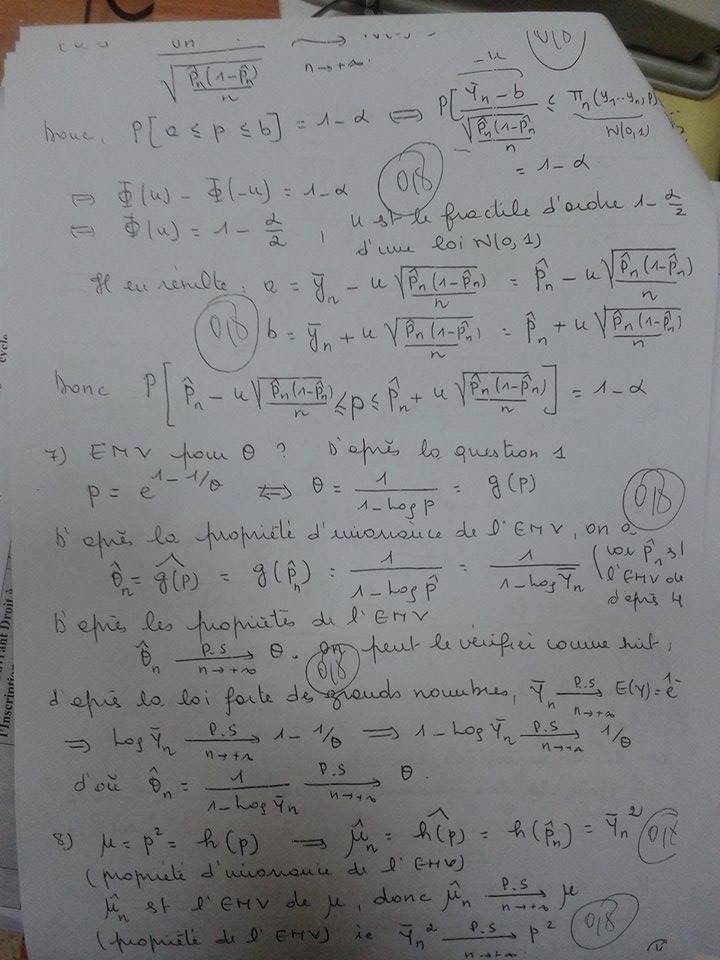 n → +∞
√(p̂n(1-p̂n)/n)
Donc, P[a ≤ p ≤ b] = 1-α ⟺ P[(Ȳn - b)/√(p̂n(1-p̂n)/n) ≤ Πn(y1...yn, p)
-u
N(0,1)
= 1-α
0,8
⟺ Φ(u) - Φ(-u) = 1-α
⟺ Φ(u) = 1 - α/2, u est le fractile d'ordre 1-α/2
d'une loi N(0,1)
Il en résulte : a = Ȳn - u√(p̂n(1-p̂n)/n) = p̂n - u√(p̂n(1-p̂n)/n)
0,8 b = Ȳn + u√(p̂n(1-p̂n)/n) = p̂n + u√(p̂n(1-p̂n)/n)
Donc P[p̂n - u√(p̂n(1-p̂n)/n) ≤ p ≤ p̂n + u√(p̂n(1-p̂n)/n)] = 1-α
7) EMV pour θ ? D'après la question 1
p = e^(1-1/θ) ⟺ θ = 1/(1-Log p) = g(p) 0,8
D'après la propriété d'invariance de l'EMV, on a
θ̂n = ĝ(p) = g(p̂n) = 1/(1-Log p̂) = 1/(1-Log Ȳn) (car p̂n est
l'EMV de
d'après 4
D'après les propriétés de l'EMV
θ̂n P.S→ n→+∞ θ. On peut le vérifier comme suit,
0,8
d'après la loi forte des grands nombres, Ȳn P.S→ n→+∞ E(Y) = e^1-
⟹ Log Ȳn P.S→ n→+∞ 1-1/θ ⟹ 1-Log Ȳn P.S→ n→+∞ 1/θ
d'où θ̂n = 1/(1-Log Ȳn) P.S→ n→+∞ θ.
8) μ = p² = h(p) → μ̂n = ĥ(p) = h(p̂n) = Ȳn²
(propriété d'invariance de l'EMV)
μ̂n est l'EMV de μ, donc μ̂n P.S→ n→+∞ μ
(propriété de l'EMV) ie Ȳn² P.S→ n→+∞ p² 0,8